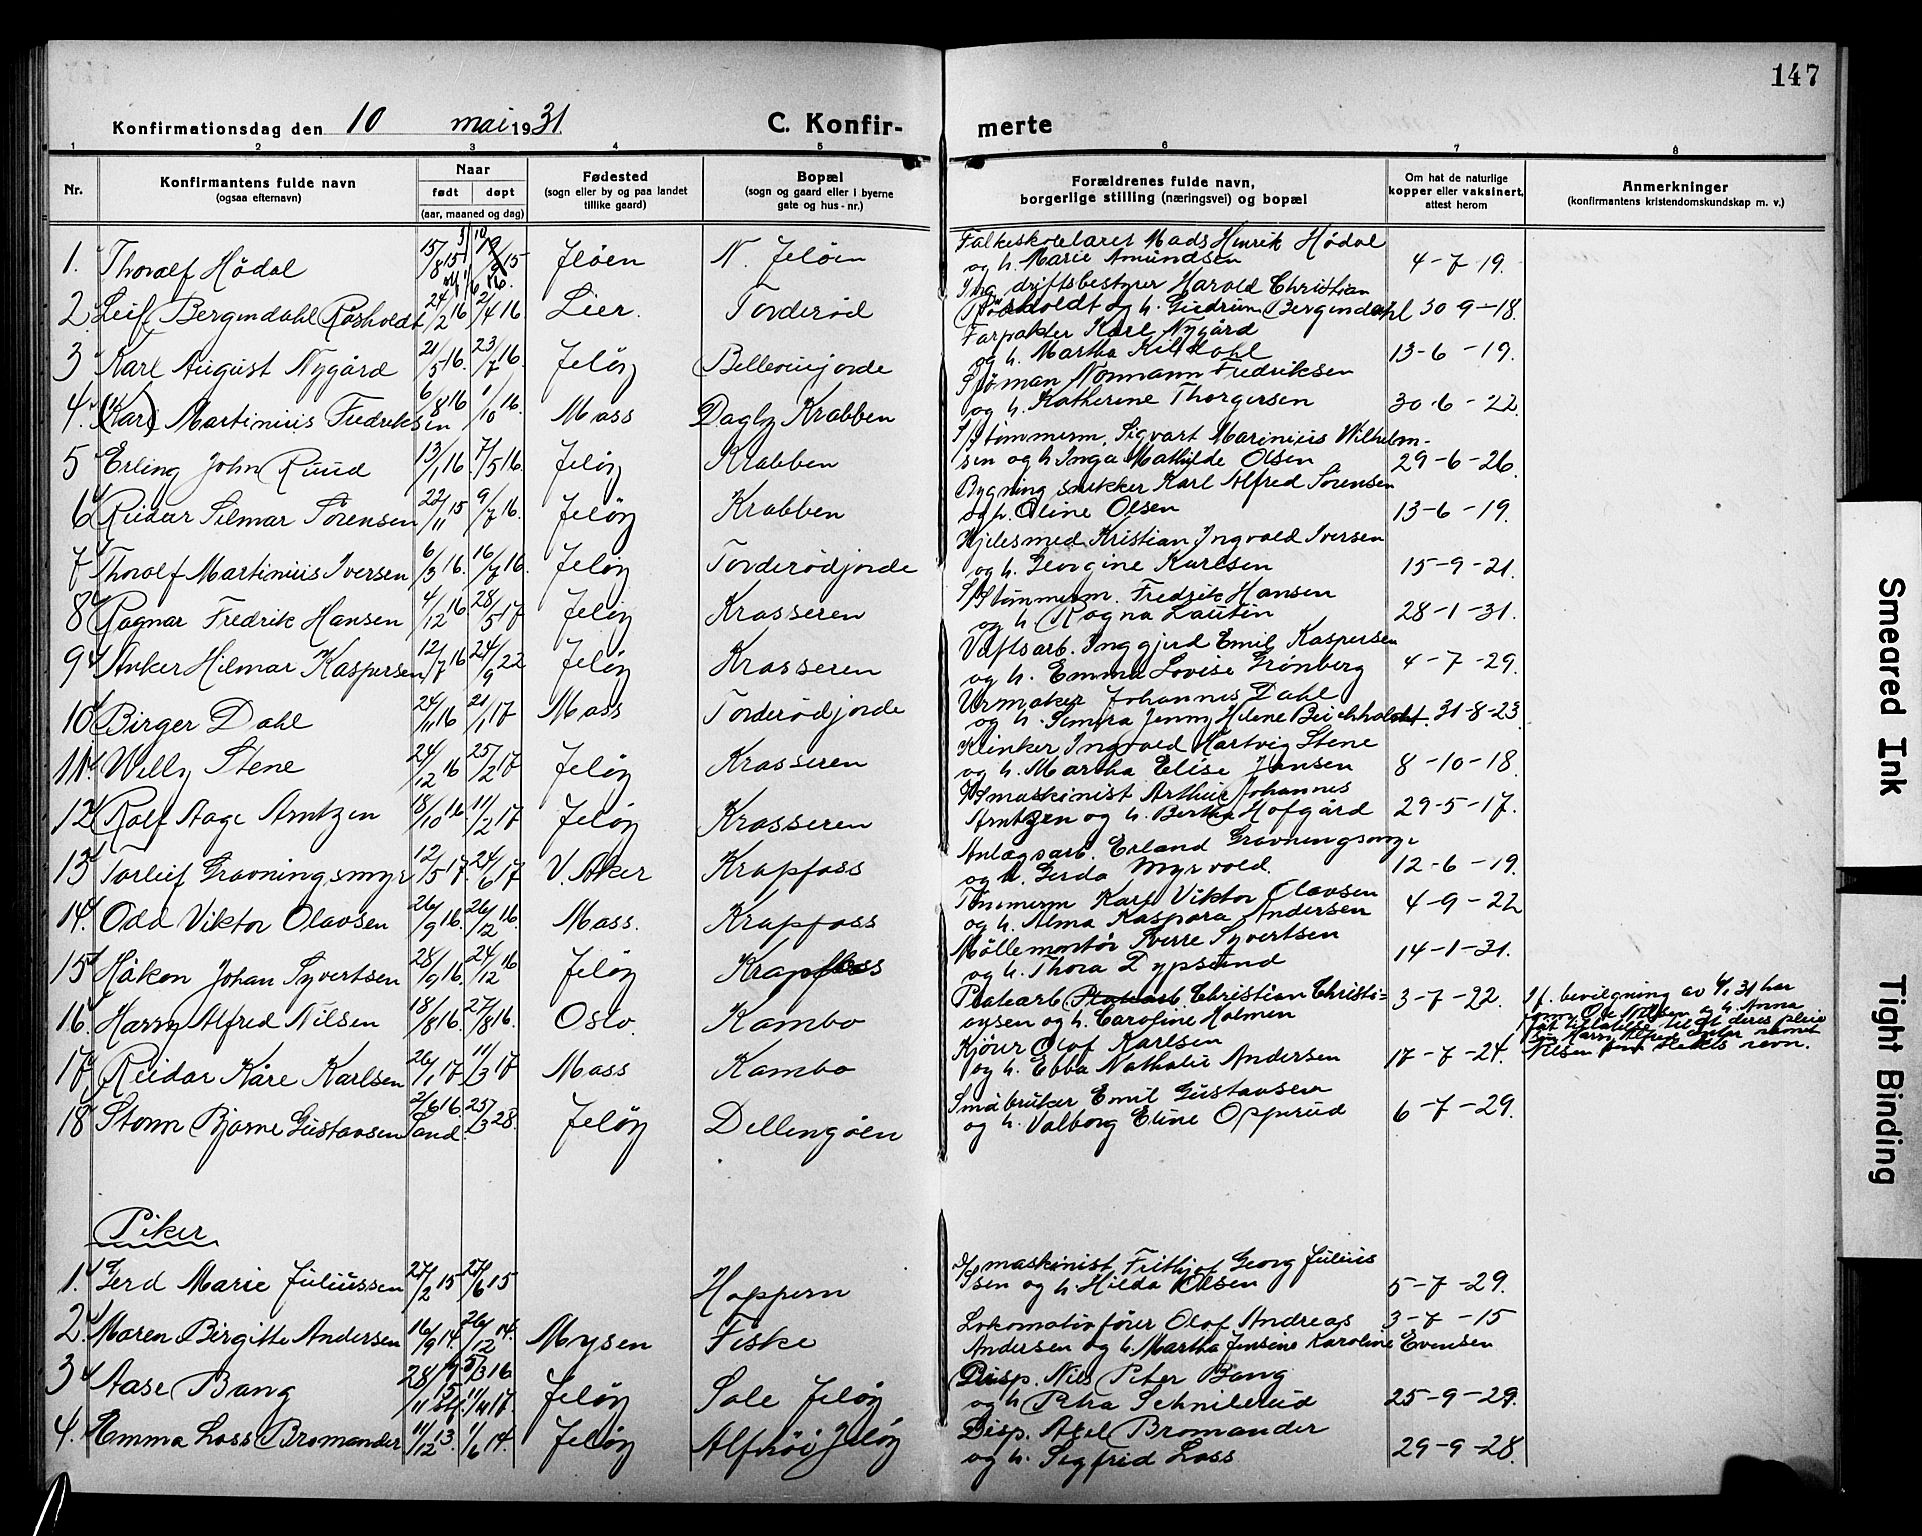 147
Konfirmationsdag den 10 mai 1931
C. Konfir-merte
1 2 3 4 5 6 7 8
Nr.
Konfirmantens fulde navn
(ogsaa efternavn)
Naar
født døpt
(aar, maaned og dag)
Fødested
(sogn eller by og paa landet
tillike gaard)
Bopæl
(sogn og gaard eller i byerne
gate og hus-nr.)
Forældrenes fulde navn,
borgerlige stilling (næringsvei) og bopæl
Om hat de naturlige
kopper eller vaksinert,
attest herom
Anmerkninger
(konfirmantens kristendomskundskap m. v.)
1. Thoralf Hödal 15/8 15 Jløen N. Jeløen Falkeskolelærer Mads Henrik Hödal
og h. Marie Amundsen 4-7-19.
2 Leif Bergendahl Røsholdt 24/2 16 2/4 16 Lier. Torderød Ing. driftsbestyrer Harald Christian
Røsholdt og h. Gudrun Bergendahl 30-9-18.
3 Karl August Nygård 21/5-16. 23/7 16. Jeløy Bellevuejorde Farpakter Karl Nygård
og h. Martha Kildahl 13-6-19.
4. (Kare) Martinius Fredriksen 6/8 16 1/10 16. Moss Dagly Krabben Sjöman Normann Fredriksen
og h. Katherine Thorgersen 30-6-22.
5 Erling John Ruud 13/1 16. 7/5 16. Jeløy Krabben S/Stömmerm. Sigvart Marinius Wilhelm-
sen og h Inga Mathilde Olsen 29-6-26.
6 Reidar Hilmar Sörensen 22/11 15 9/7 16. Jeløy Krabben Bygning snekker Karl Alfred Sörensen
og h. Oline Olsen 13-6-19.
7 Thoralf Martinius Iversen 6/3 16. 16/7 16. Jeløy Torderødjorde Kjelesmed Kristian Ingvald Iversen
og h. Georgine Karlsen 15-9-21.
8 Ragnar Fredrik Hansen 4/12 16 28/5 17 Jeløy Krasseren S/Stömmerm. Fredrik Hansen
og h Ragna Lautin 28-1-31.
9 Anker Hilmar Kaspersen 12/7 16 24/9 22 Jeløy Krasseren Vaftsarb. Inggjerd Emil Kaspersen
og h. Emma Lovise Grönberg 4-7-29.
10 Birger Dahl 24/11 16 21/1 17 Moss Torderødjorde Urmaker Johannes Dahl
og h. Jenny Helene 31-8-23
11. Willy Stene 24/12 16 25/2 17 Jeløy Krasseren Klinker Ingvald Hartvig Stene
og h. Martha Elise Jansen 8-10-18.
12 Rolf Aage Arntzen 18/10 16 11/2 17 Jeløy Krasseren maskinist Arthur Johannes
Arntzen og h. Bertha Hofgård 29-5-17.
13 Torleif Gravningsmyr 12/5 17. 24/6 17 V. Aker Krapfoss Anlægsarb. Erland Gravningsmyr
og h. Gerda Myrvold. 12-6-19.
14. Odd Viktor Olavsen 26/9 16. 26/12 16. Moss. Krapfoss Tömmerm Karl Viktor Olavsen
og h. Alma Kaspara Andersen 4-9-22
15 Håkon Johan Syvertsen 28/9 16. 24/12 16 Jeløy Krapfoss Möllemontör Sverre Syvertsen
og h. Thora Dypsund 14-1-31.
16. Harry Alfred Nilsen 18/8 16. 27/8 16. Oslo. Kambo Platearb. Platearb. Christian Christi-
ansen og h. Caroline Holmen 3-7-22. If. bevilgning av 4/1 31 har
Ole Nilsen og h. Anna
fåt tillatelse til at deres pleie
sön Harry Alfred antar navnet
Nilsen som slekts navn.
17 Reidar Kåre Karlsen 26/1 17. 11/3 17 Moss Kambo Kjörer Olof Karlsen
og h. Ebba Nathalie Andersen 17-7-24.
18 Storm Bjarne Gustavsen 2/6 16. Sand. 25/3 28. Jeløy Dellengøen Småbruker Emil Gustavsen
og h. Valborg Eline Opprud 6-7-29.
Piker
1. Gerd Marie Juliussen 27/2 15 27/6 15 Hoppern maskinist Frithjof Georg Julius
sen og h. Hilda Olsen 5-7-29.
2. Maren Birgitte Andersen 16/9 14. 26/12 14. Mysen Fiske Lokomotivfører Olof Andreas 3-7-15
Andersen og h. Martha Jensine Karoline Evensen
3 Aase Bang 28/11 15 5/3 16 Jeløy Sole Jeløy Disp. Nils Peter Bang
og h Petra Schnilerud 25-9-29.
4. Emma Lass Bromander 11/12 13. 1/6 14. Jeløy Alfhøi Jeløy Disp. Axel Bromander
og h. Sigfrid Lass 29-9-28.
Smeared Ink
Tight Binding